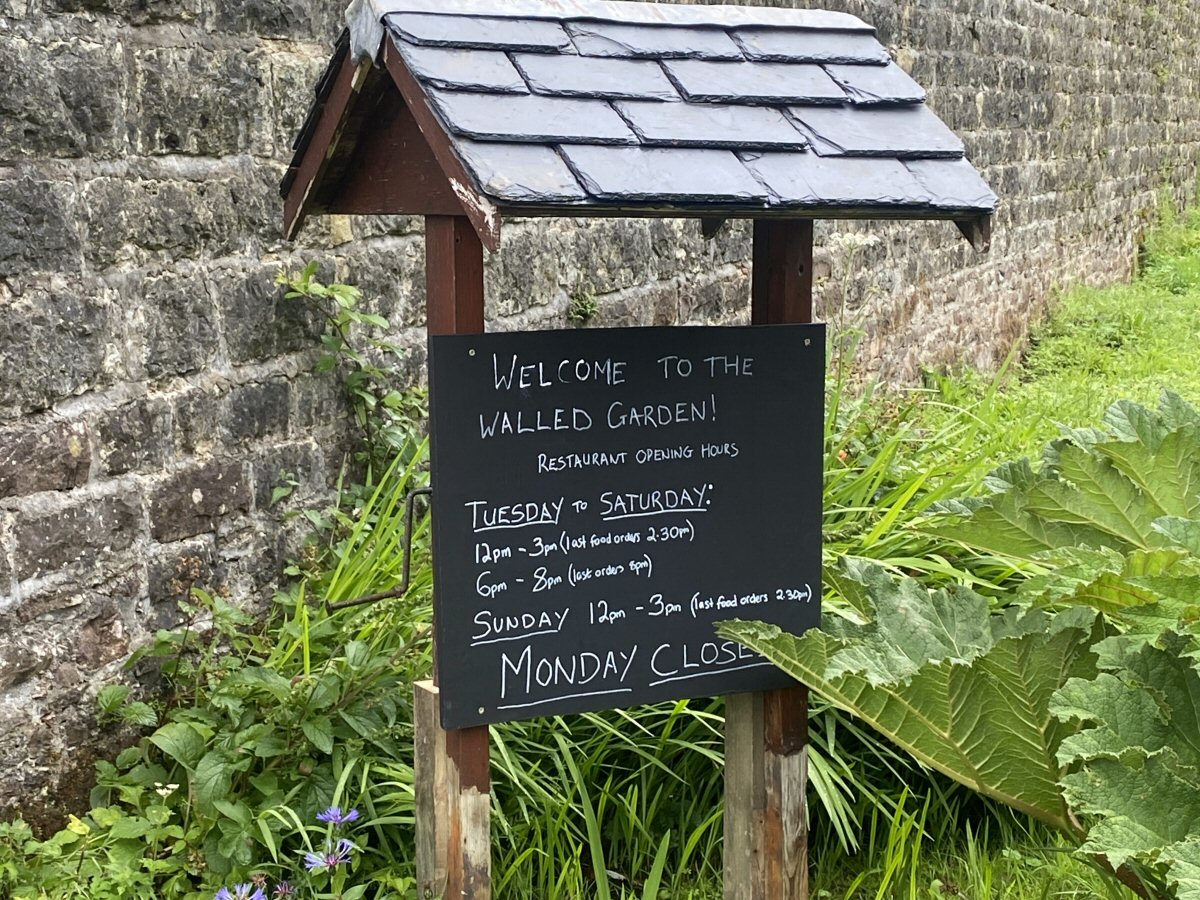 WELCOME TO THE
WALLED GARDEN!
RESTAURANT OPENING HOURS
TUESDAY TO SATURDAY:
12pm - 3pm (last food orders 2.30pm)
6pm - 8pm (last orders 8pm)
SUNDAY 12pm - 3pm (last food orders 2.30pm)
MONDAY CLOSE